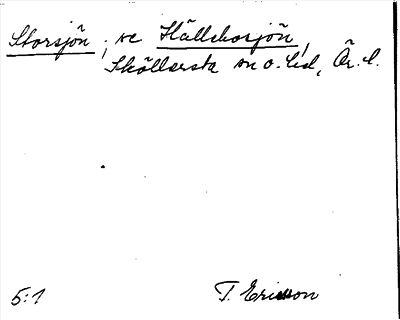 Storsjön, se Hällebosjön,
Sköllersta sn o. hd, Ör. l.
5:1 T. Ericsson